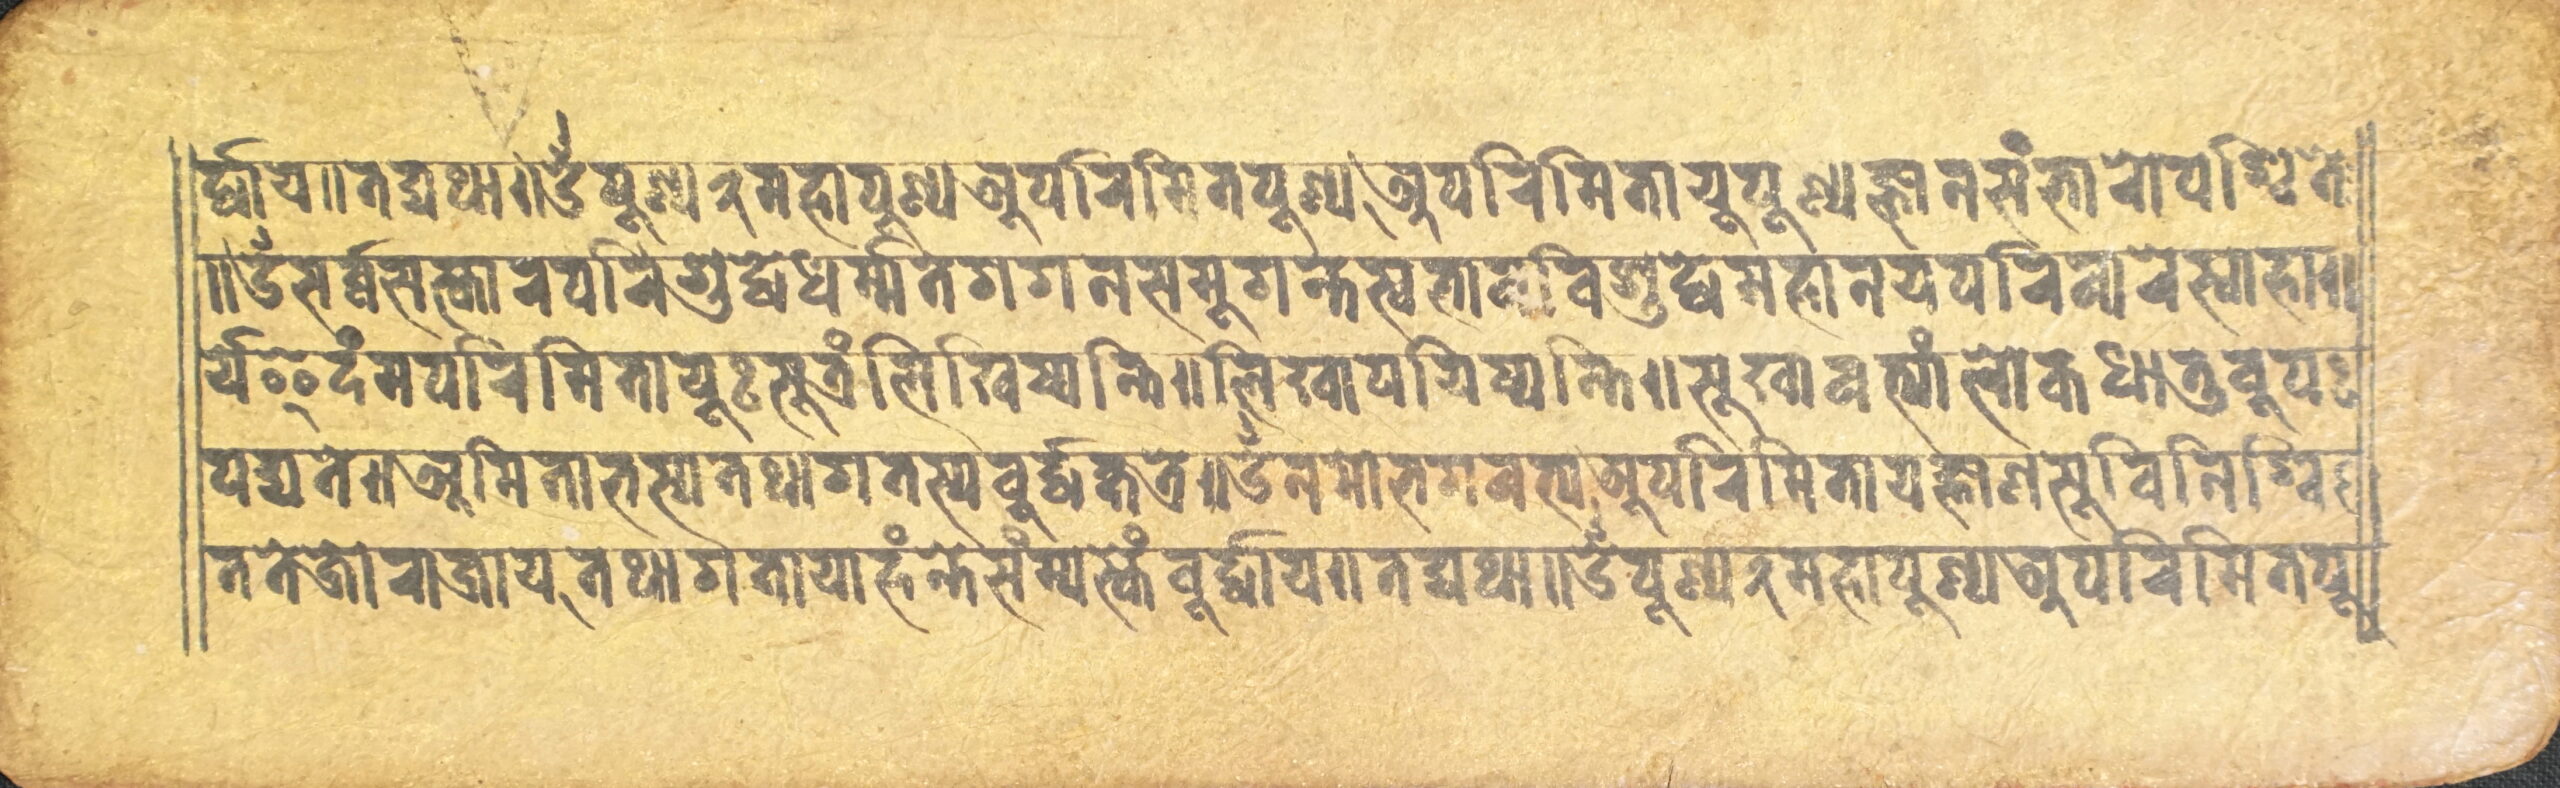 र्द्धाय॥तद्यथा॥ॐपूण्य२महापूण्यअपरिमितपूण्यअपरिमितायूपूण्यज्ञानसंभारोपश्चिते
॥ॐसर्व्वसस्कारपरिशुद्धेधर्म्मतगगनसमूगन्तस्वभावेविशुद्धेमहानयपरिवारेस्वाहा॥
र्यइदंमपरिमितायूःसूत्रंलिखिष्यन्ति॥लिखापयिष्यन्ति॥सूखावत्यांलोकधातुवूप
पद्यते॥अमिताभस्यातथागतस्यबूर्द्धक्षत्रे॥ॐनमोभगवत्यअपरिमितायज्ञाणसूविनिश्चि
ततेजोराजायतथागतायार्हंन्तेसंम्यस्कंबूर्द्धाय॥तद्यथा॥ॐपूण्य२महापूण्यअपरिमितपू